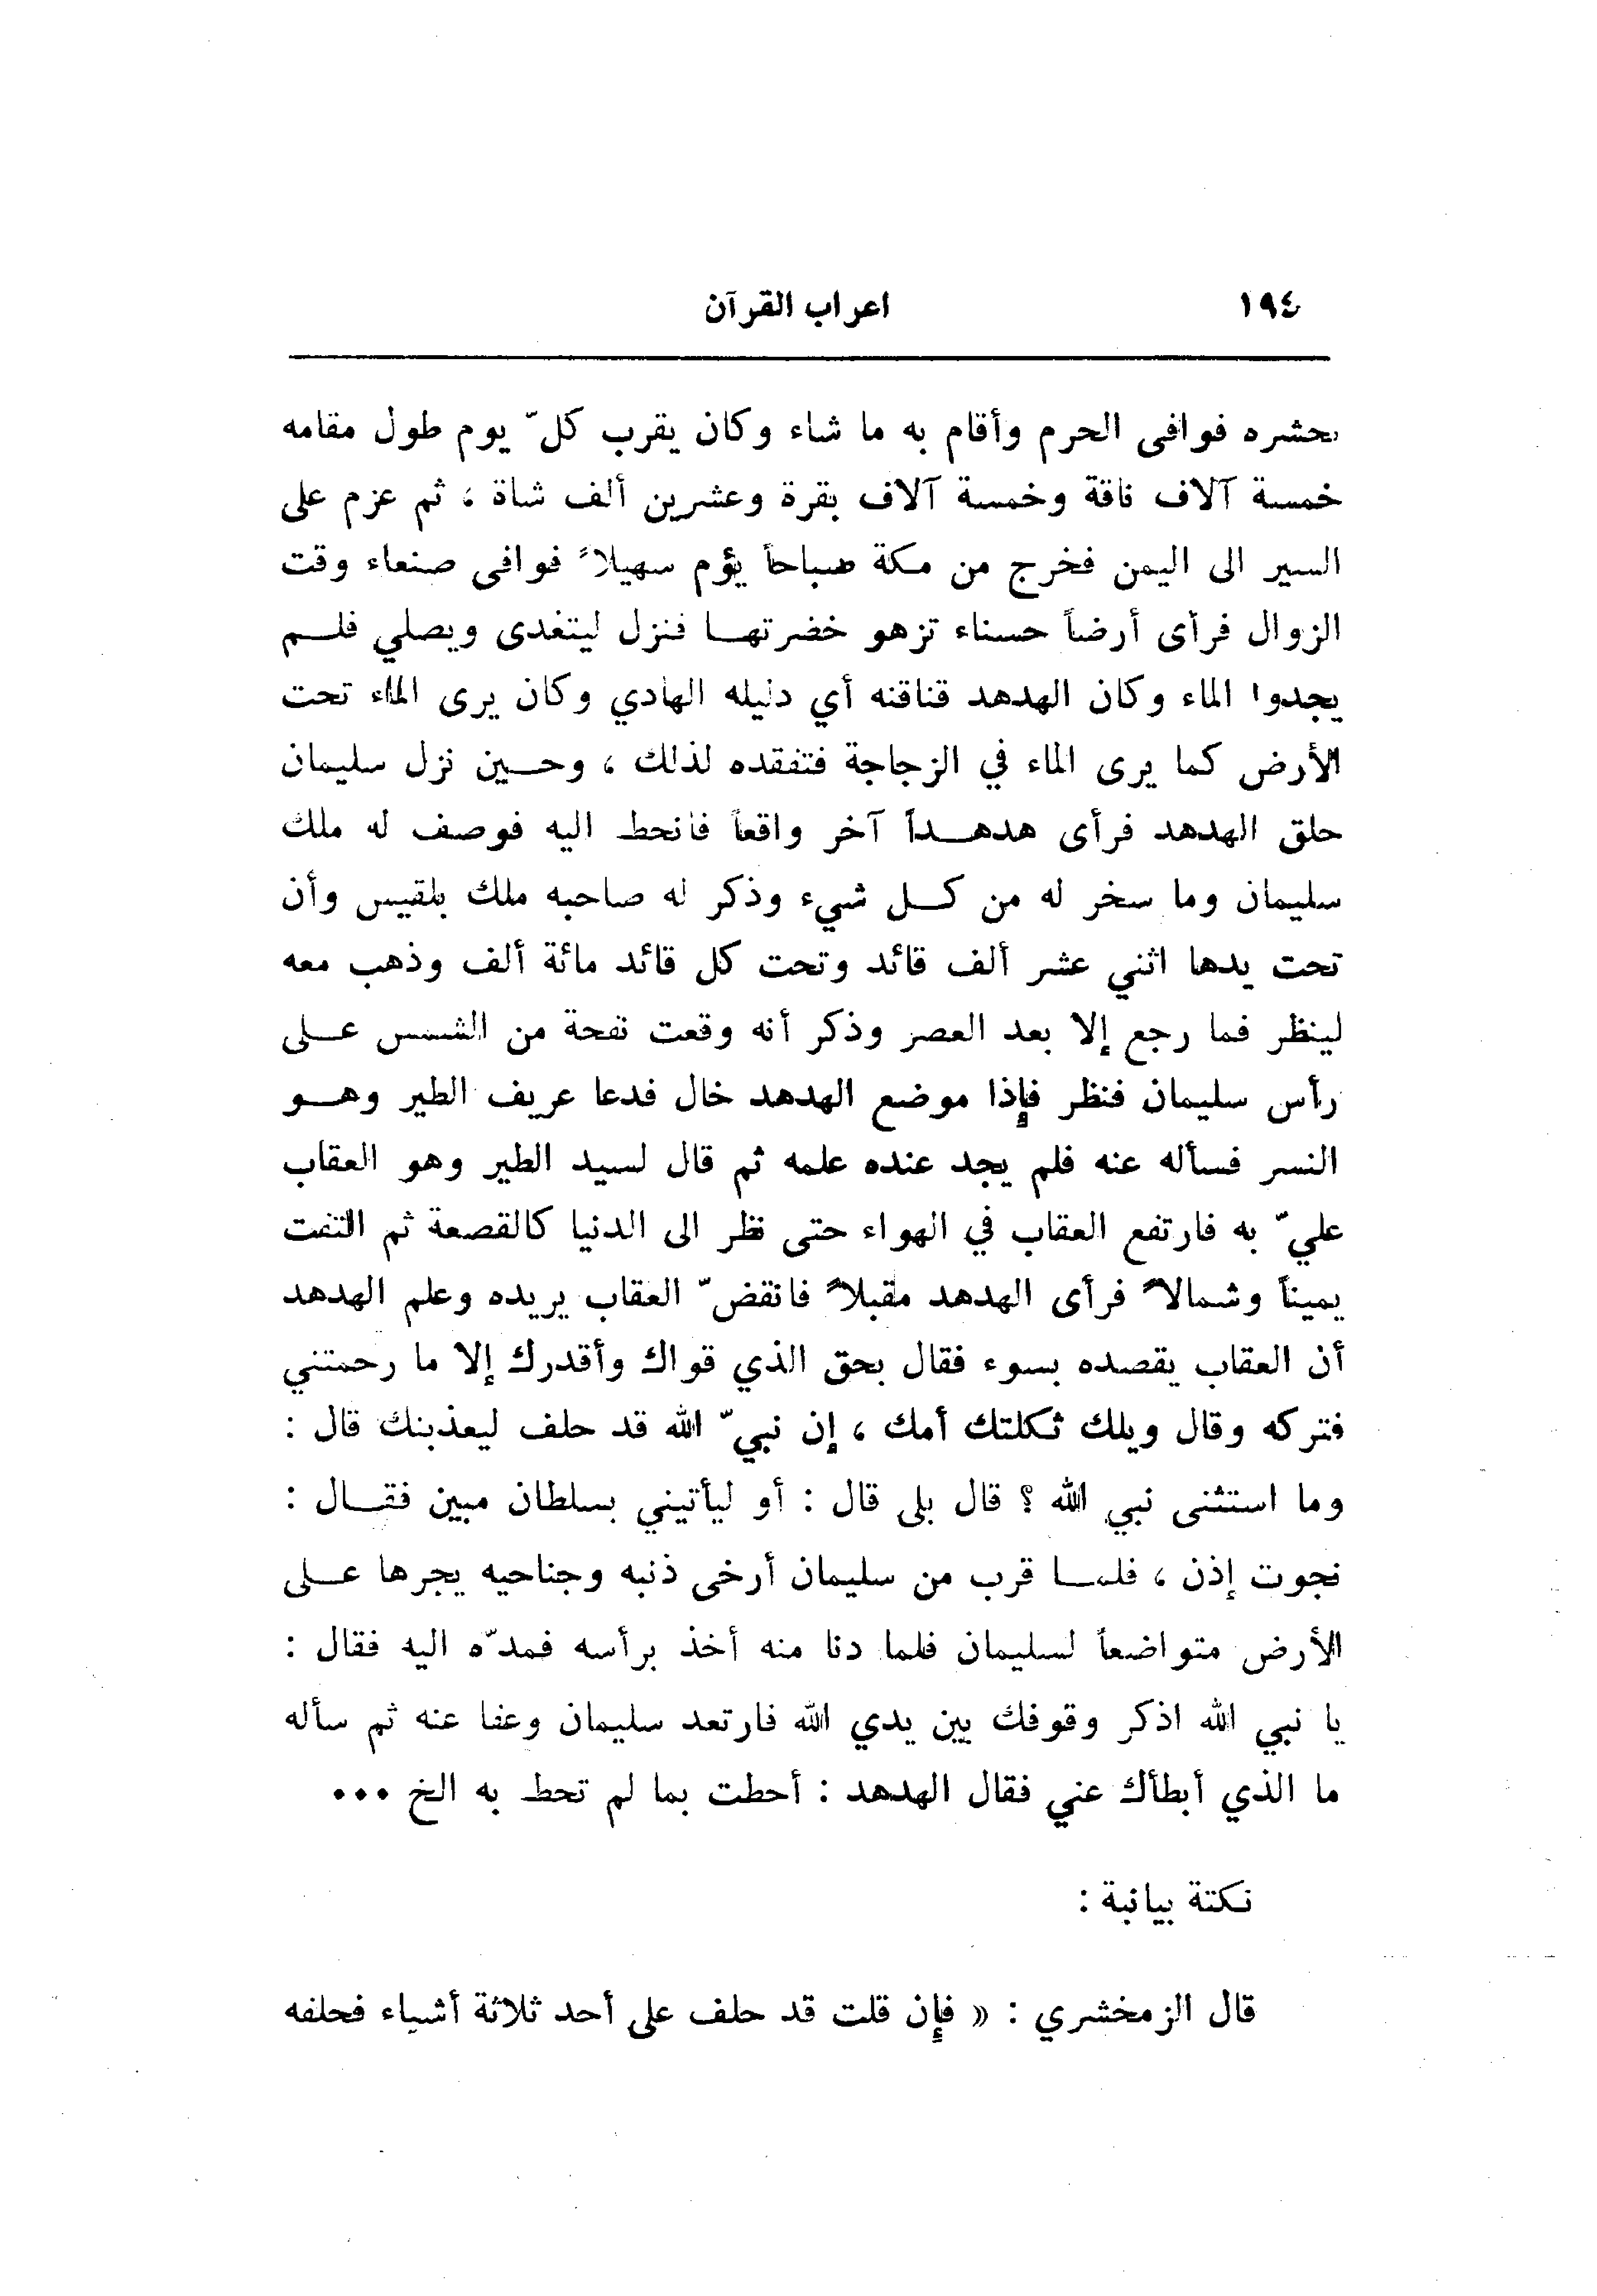 ١٩٤
اعراب القرآن
بحشره فوافى الحرم وأقام به ما شاء وكان يقرب كلّ يوم طول مقامه
خمسة آلاف ناقة وخمسة آلاف بقرة وعشرين ألف شاة ، ثم عزم على
السير الى اليمن فخرج من مكة صباحاً يؤم سهيلاً فوافى صنعاء وقت
الزوال فرأى أرضاً حسناء تزهو خضرتها فنزل ليتغدى ويصلي فلم
يجدوا الماء وكان الهدهد قناقنه أي دليله الهادي وكان يرى الماء تحت
الأرض كما يرى الماء في الزجاجة فتفقده لذلك ، وحين نزل سليمان
حلق الهدهد فرأى هدهداً آخر واقعاً فانحط اليه فوصف له ملك
سليمان وما سخر له من كل شيء وذكر له صاحبه ملك بلقيس وأن
تحت يدها اثني عشر ألف قائد وتحت كل قائد مائة ألف وذهب معه
لينظر فما رجع إلا بعد العصر وذكر أنه وقعت نفحة من الشمس على
رأس سليمان فنظر فإذا موضع الهدهد خال فدعا عريف الطير وهو
النسر فسأله عنه فلم يجد عنده علمه ثم قال لسيد الطير وهو العقاب
عليّ به فارتفع العقاب في الهواء حتى نظر الى الدنيا كالقصعة ثم التفت
يميناً وشمالاً فرأى الهدهد مقبلاً فانقضّ العقاب يريده وعلم الهدهد
أن العقاب يقصده بسوء فقال بحق الذي قواك وأقدرك إلا ما رحمتني
فتركه وقال ويلك ثكلتك أمك ، إن نبيّ الله قد حلف ليعذبنك قال :
وما استثنى نبي الله ؟ قال بلى قال : أو ليأتيني بسلطان مبين فقال :
نجوت إذن ، فلما قرب من سليمان أرخى ذنبه وجناحيه يجرها على
الأرض متواضعاً لسليمان فلما دنا منه أخذ برأسه فمدّه اليه فقال :
يا نبي الله اذكر وقوفك بين يدي الله فارتعد سليمان وعفا عنه ثم سأله
ما الذي أبطأك عني فقال الهدهد : أحطت بما لم تحط به الخ ...
نكتة بيانية :
قال الزمخشري : « فإن قلت قد حلف على أحد ثلاثة أشياء فحلفه